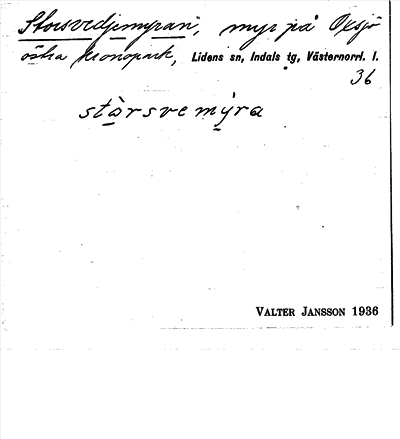 Storsvedjemyran, myr på Oxsjö
östra kronopark, Lidens sn, Indals tg, Västernorrl. l.
36
stårsvemyra
VALTER JANSSON 1936